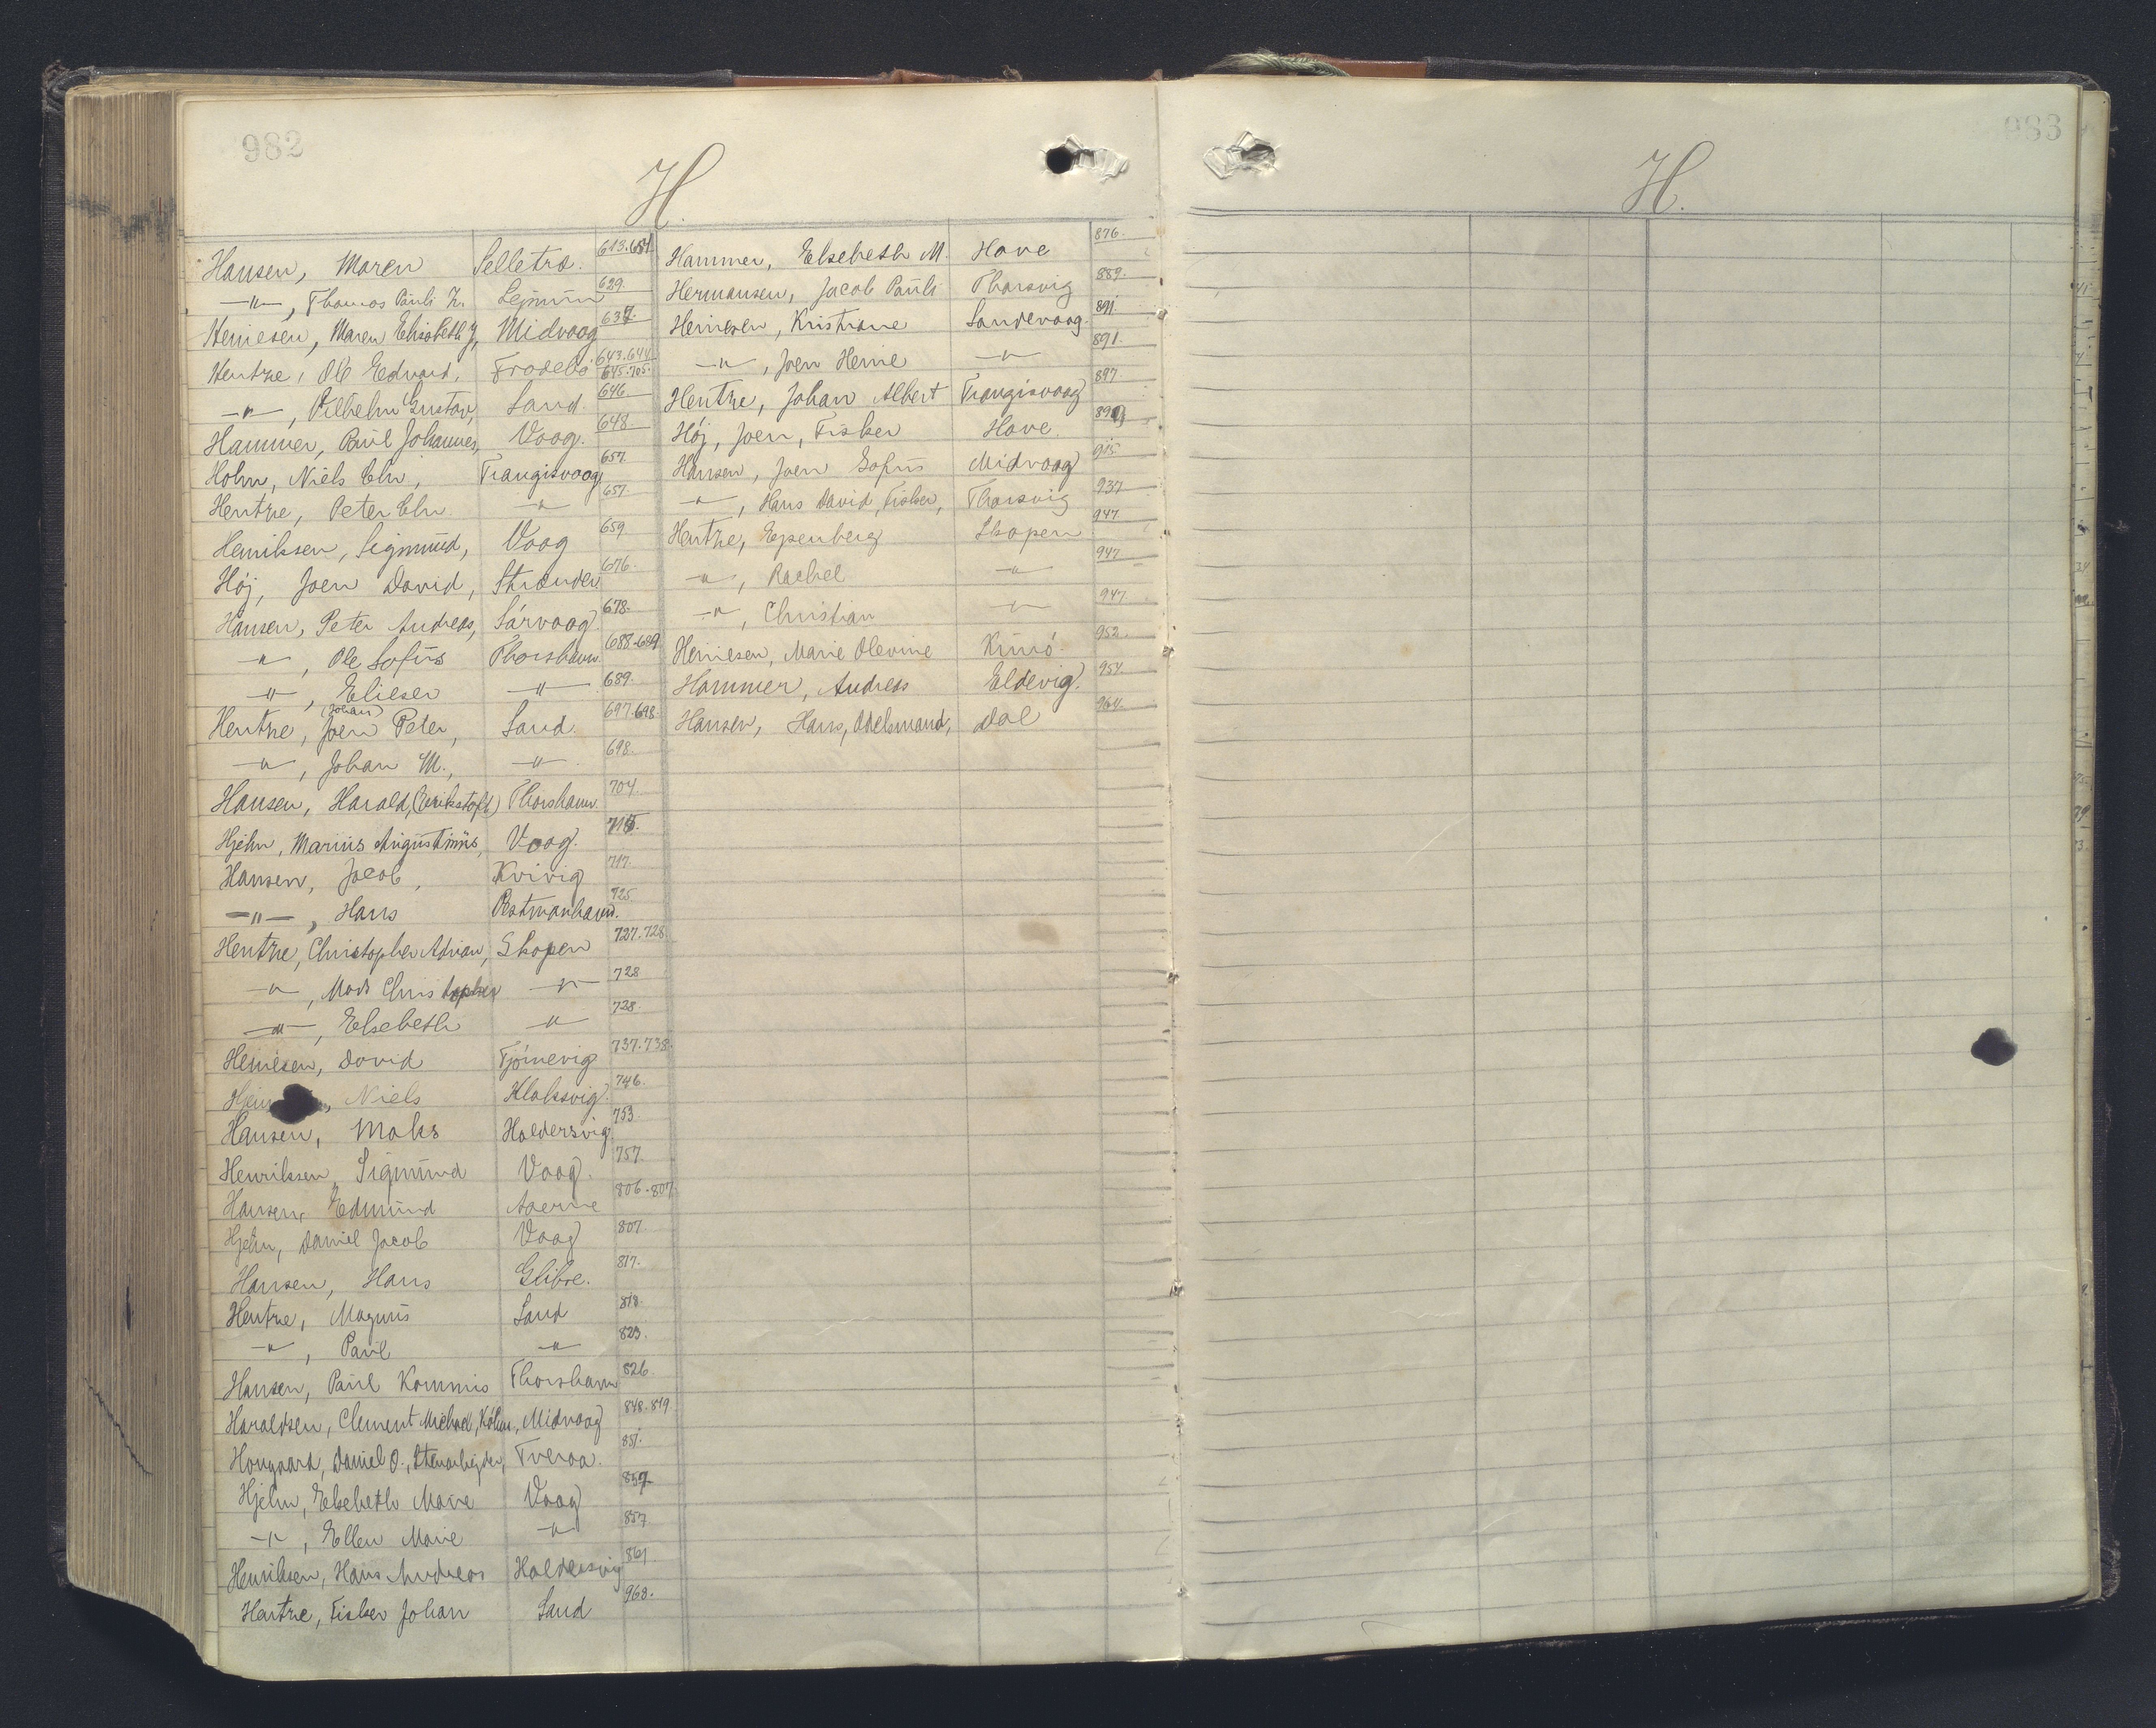 982
H.
Hansen, Maren Selletræ. 613.654
—"—, Thomas Pauli Z. Lejnum 629.
Heinesen, Maren Elisabeth J, Midvaag 637.
Hentze, Ole Edvard, Frodebø 643.644. 645.705.
—"—, Vilhelm Gustav, Sand. 646
Hammer, Poul Johannes, Vaag. 648
Holm, Niels Chr, Trangisvaag 657.
Hentze, Peter Chr. —"— 657.
Henriksen, Sigmund, Vaag 659
Høj, Joen David, Strænder 676.
Hansen, Peter Andreas, Sørvaag. 678.
—"—, Ole Sofus Thorshavn. 688-689
—"—, Elieser —"— 689.
Hentze, Joen (Johan) Peter, Sand. 697.698.
—"—, Johan M., —"— 698.
Hansen, Harald, (Erikstoft) Thorshavn. 704.
Hjelm, Marius Augustinus, Vaag. 715.
Hansen, Jacob, Kvivig 717.
—"—, Hans Vestmanhavn. 725.
Hentze, Christopher Adrian, Skopen 727.728
—"—, Mads Christopher —"— 728
—"—, Elsebeth —"— 728.
Heinesen, David Tjørnevig 737.738.
Niels Klaksvig. 746.
Hansen, Maks Haldersvig 753.
Henriksen, Sigmund Vaag. 757.
Hansen, Edmund Aaerne 806.807
Hjelm, Daniel Jacob Vaag 807.
Hansen, Hans Glibre. 817.
Hentze, Magnus Sand 818.
—"—, Paul —"— 823.
Hansen, Paul Kommis Thorshavn 826.
Haraldsen, Clement Michael, Købm, Midvaag 848.849.
Hougaard, Daniel O., Stenarbejder, Tveraa. 851.
Hjelm, Elsebeth Marie Vaag 857
—"—, Ellen Marie —"— 857
Henriksen, Hans Andreas Haldersvig 861.
Hentze, Fisker Johan Sand 968.
Hammer, Elsebeth M. Hove 876.
Hermansen, Jacob Pauli Thorsvig 889.
Heinesen, Kristiane Sandevaag. 891.
—"—, Joen Heine —"— 891.
Hentze, Johan Albert Trangisvaag 897.
Høj, Joen, Fisker Hove.
Hansen, Joen Sofus Midvaag 915.
—"—, Hans David, Fisker, Thorsvig 937
Hentze, Espenberg Skopen 947
—"—, Rachel —"— 947.
—"—, Christian —"— 947.
Heinesen, Marie Olevine Kunø. 952.
Hammer, Andreas Eldevig. 954.
Hansen, Hans, Odelsmand, Dal 964.
983
H.